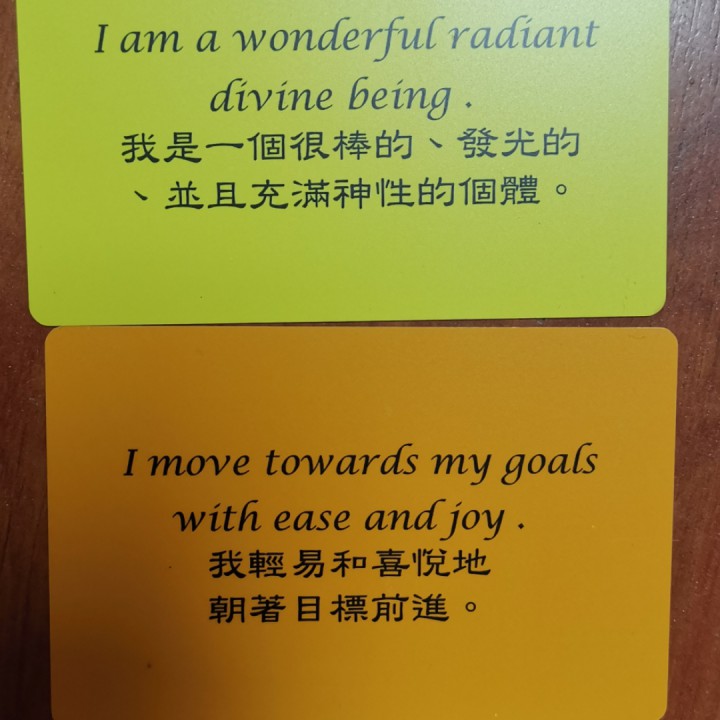 I am a wonderful radiant
divine being .
我是一個很棒的、發光的
、並且充滿神性的個體。
I move towards my goals
with ease and joy .
我輕易和喜悅地
朝著目標前進。